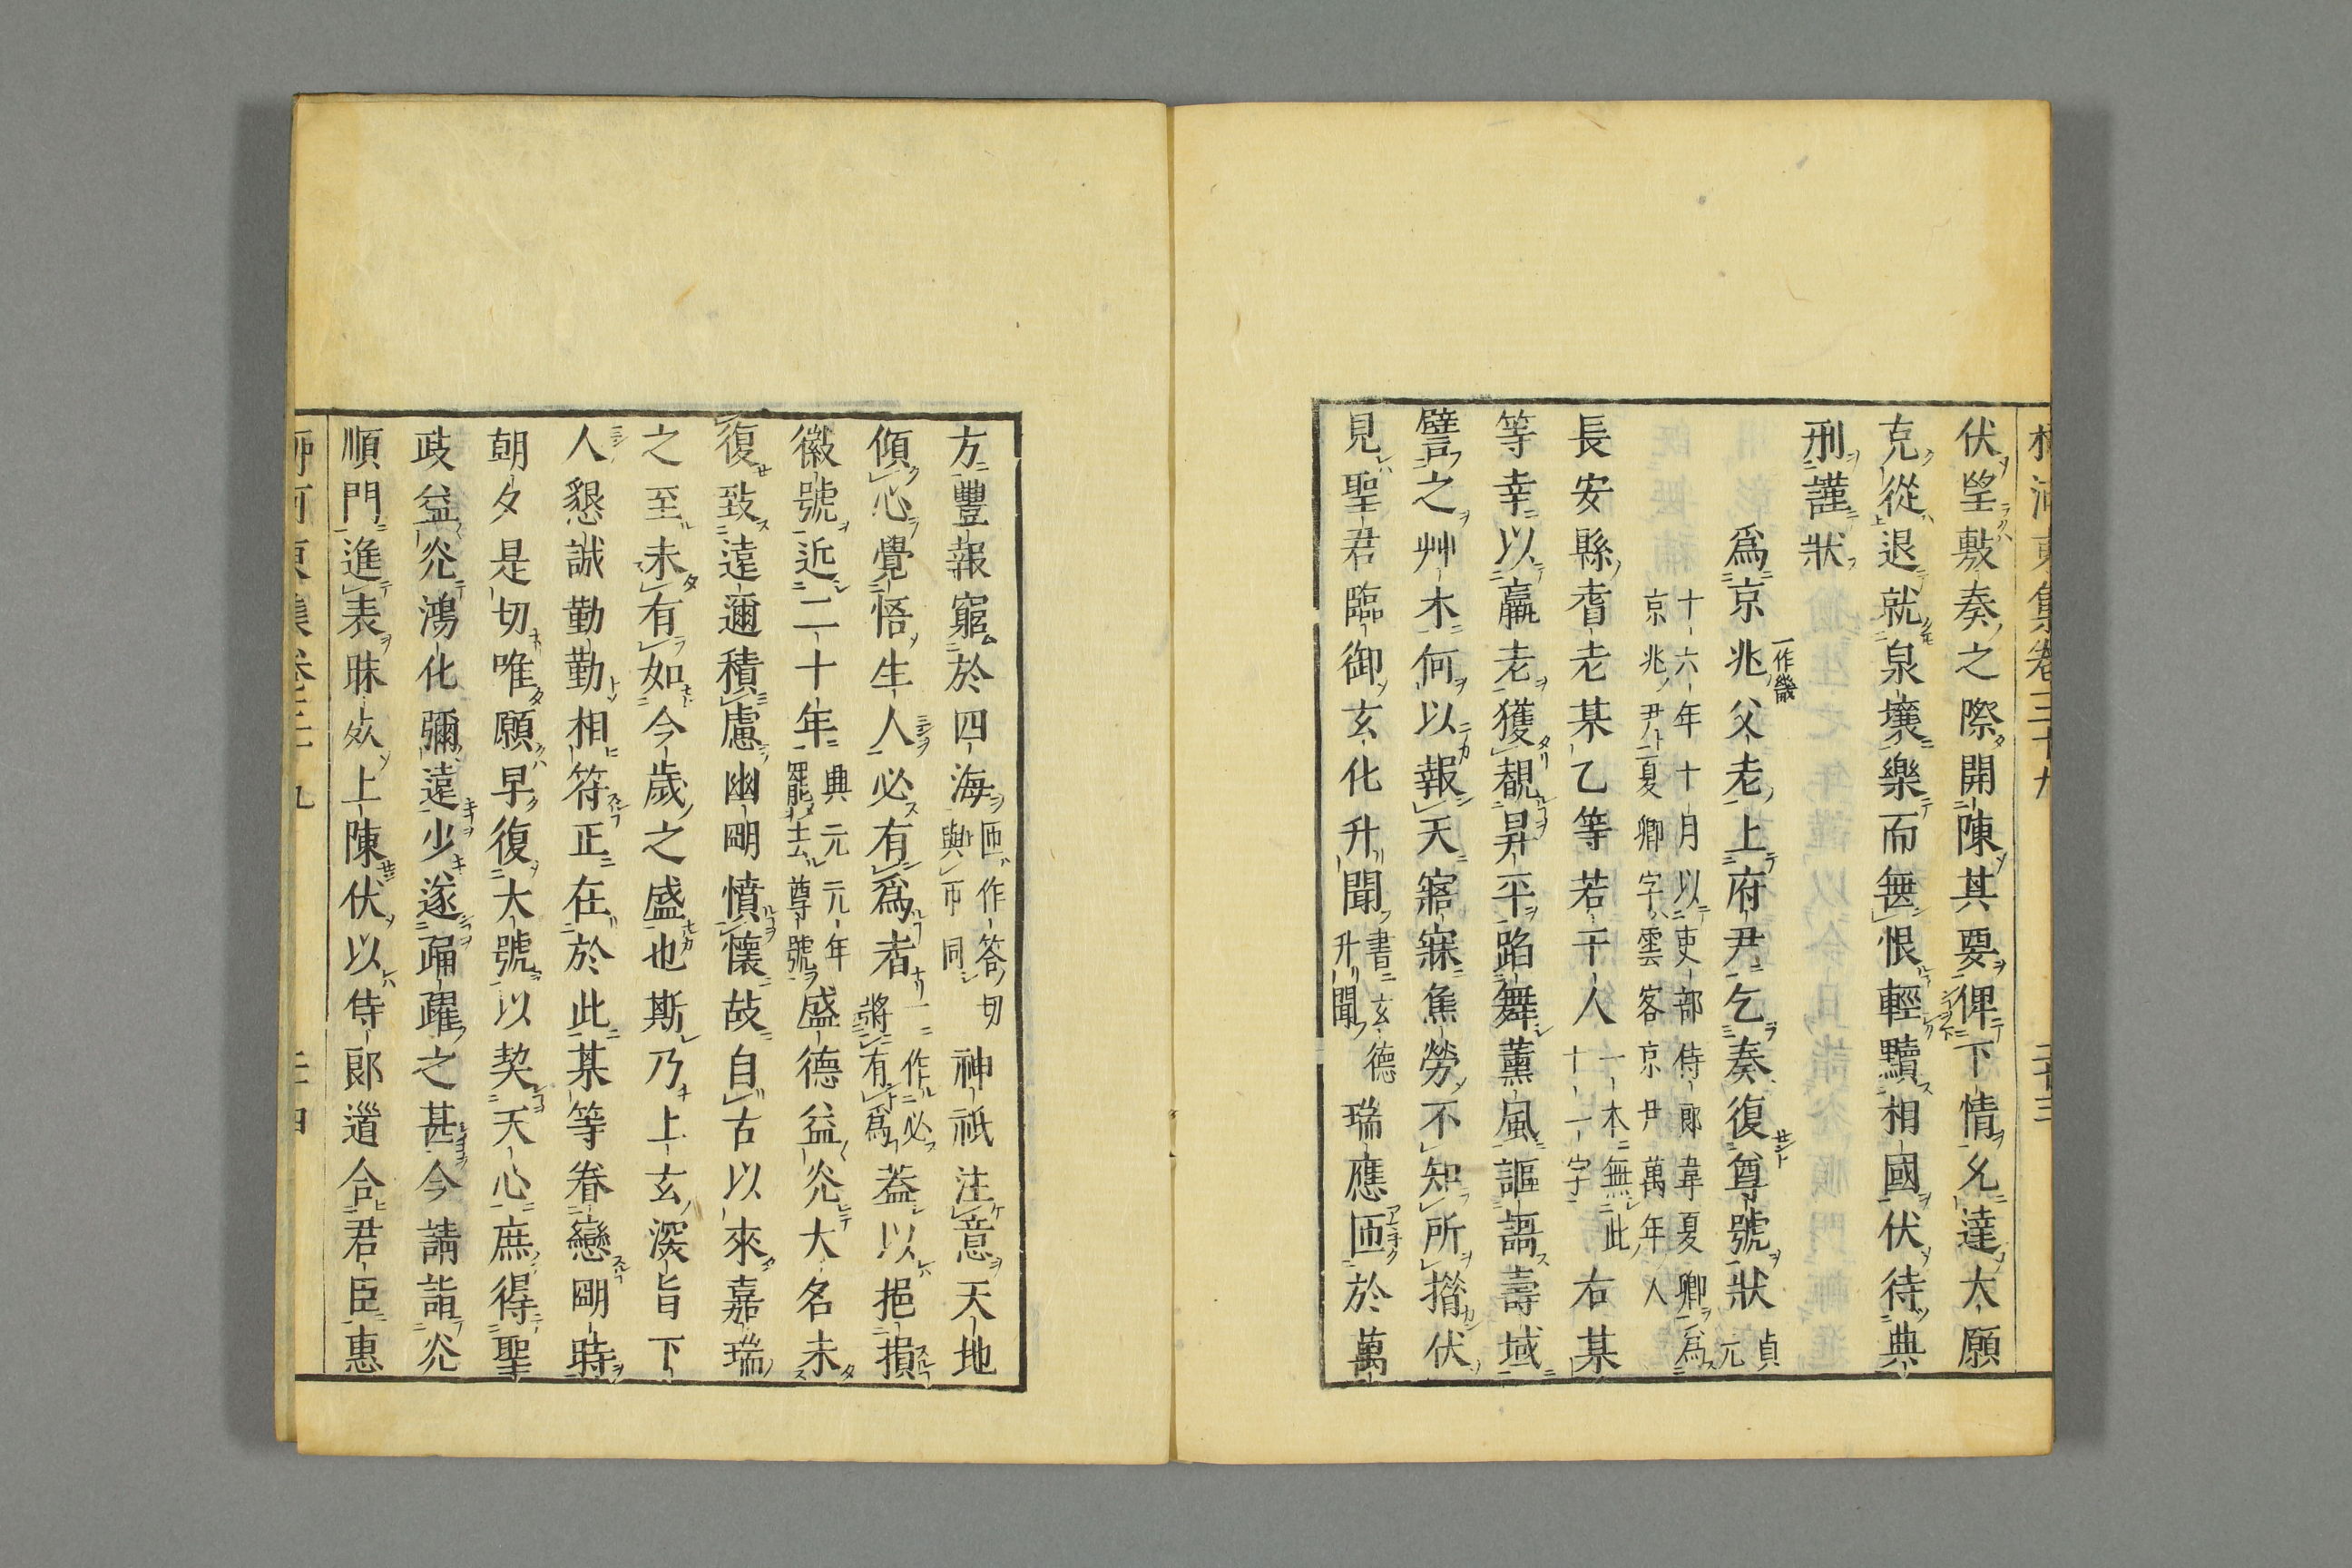 柳河東集卷三十九 二十三
伏望敷奏之際開陳其要俾下情允達大願
克從退就泉壤樂而無恨輕黷相國伏待典
刑謹狀
爲京兆一作畿父老上府尹乞奏復尊號狀貞元
十六年十月以吏部侍郎韋夏卿爲
京兆尹夏卿字雲客京兆萬年人
長安縣耆老某乙等若干人一本無此十一字右某
等幸以羸老獲覩昇平蹈舞薰風謳謡壽域
譬之艸木何以報天寤寐焦勞不知所措伏
見聖君臨御玄化升聞書玄德升聞瑞應匝於萬
方豐報窮於四海匝作答切與帀同神祇注意天地
傾心覺悟生人必有爲者一作必將有爲葢以挹損
徽號近二十年興元元年罷去尊號盛德益光大名未
復致遠邇積慮幽明憤懷故自古以來嘉瑞
之至未有如今歲之盛也斯乃上玄深旨下
人懇誠勤勤相符正在於此某等眷戀明時
朝夕是切唯願早復大號以契天心庶得聖
政益光鴻化彌遠少遂踊躍之甚今請詣光
順門進表昧死上陳伏以侍郎道合君臣惠
柳河東集卷三十九 二十四